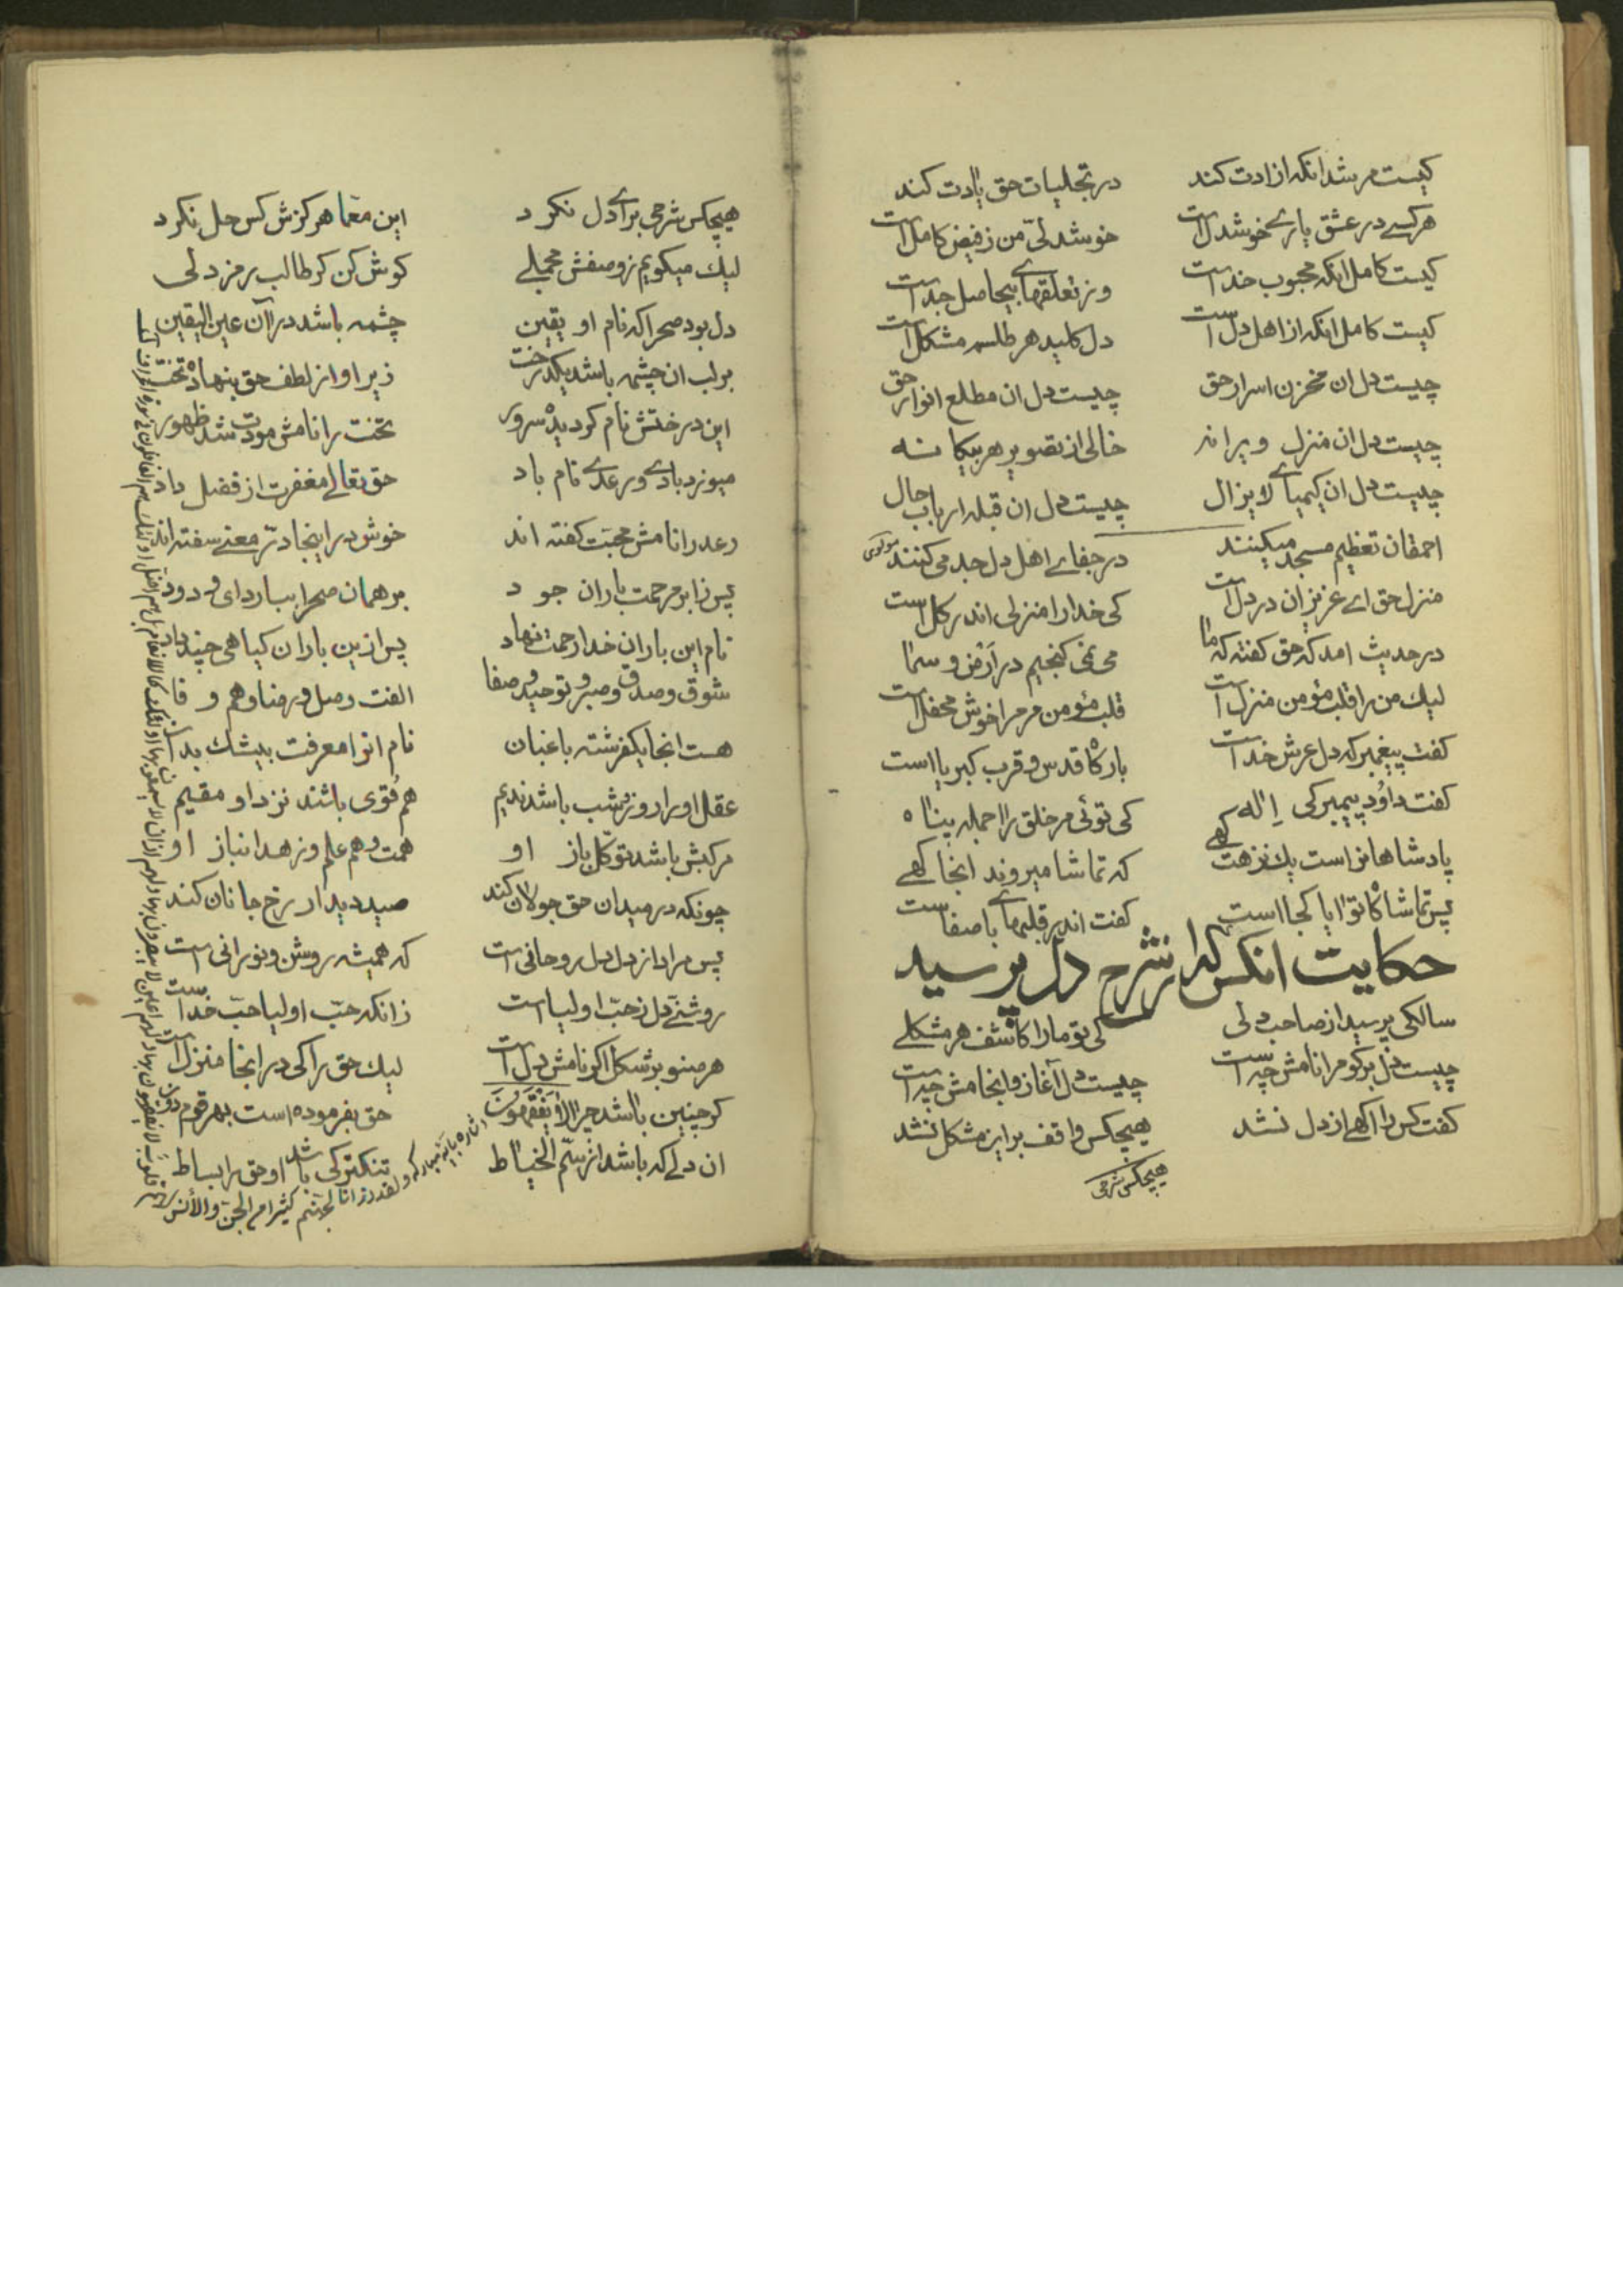 کیست مرشد انکه ازادت کند در تجلیات حق یادت کند
هر کسے در عشق یارے خوشدل است خوشدلیّ من ز فیض کامل است
کیست کامل انکه محبوب خداست وز تعلقهاے بیحاصل جداست
کیست کامل انکه از اهل دل است دل کلید هر طلسم مشکل است
چیست دل ان مخزن اسرار حق چیست دل ان مطلع انوار حق
چیست دل ان منزل ویرانه خالی از تصویر هر بیکانه
چیست دل ان کیمیاے لایزال چیست دل ان قبله ارباب حال
احمقان تعظیم مسجد میکنند در جفاے اهل دل جد می کنند
مولوی
منزل حق اے عزیزان در دل است کی خدا را منزلی اندر کل است
در حدیث امد که حق کفته که ما می نمی کنجیم در ارض و سما
لیك من را قلب مؤمن منزل است قلب مؤمن مر مرا خوش محفل است
کفت پیغمبر که دل عرش خداست بارکاه قدس و قرب کبریا است
کفت داوُد پیمبر کی اِلٰه کی توئی مر خلق را جمله پناه
پادشاهانراست یك نزهت کهے که تماشا میروند انجا کهے
پس تماشاکاه تو ایا کجا است کفت اندر قلبهاے باصفاست
حکایت انکس که از شرح دل پرسید
سالکی پرسید از صاحبدلی کی تو ما را کاشف هر مشکلے
چیست دل برکو مرا نامش چه است چیست دل آغاز و انجامش چه است
کفت کس را اکهے از دل نشد هیچکس واقف براین مشکل نشد
هیچکس شرحی
هیچکس شرحی براے دل نکرد این معّما هرکزش کس حل نکرد
لیك میکویم ز وصفش مجملے کوش کن کر طالب رمز دلی
دل بود صحرا که نام او یقین چشمه باشد در آن عین الیقین
بر لب ان چشمه باشد یکدرخت زیر او از لطف حق بنهاده تخت
این درختش نام کردیده سرور تخت را نامش مودت شد ظهور
میوزد بادے و رعدے نام باد حق تعالے مغفرت از فضل داد
رعد را نامش محبّت کفته اند خوش در اینجا درّ معنے سفته اند
پس ز ابر مرحمت باران جود بر همان صحرا ببارد ای ودود
نام این باران خدا رحمت نهاد پس ازین باران کیاهی چند داد
شوق و صدق و صبر و توحید و صفا الفت و صل و رضا و هم وفا
هست انجا یکفرشته باغبان نام انرا معرفت بیشك بدان
عقل او را روز و شب باشد ندیم هم قُوی باشند نزد او مقیم
مرکبش باشد توکّل باز او همت و هم علم و زهد انباز او
چونکه در میدان حق جولان کند صید دیدار رخ جانان کند
پس مراد از دل دل روحانی است که همیشه روشن و نورانی است
روشنے دل ز حبّ اولیا است زانکه حبّ اولیا حبّ خداست
هر صنوبر شکل اکر نامش دل است لیك حق را کی در انجا منزل است
کر چنین باشد چرا لا یَفْقَهُونَ حق بفرموده است بهر قوم دون
ان دلے که باشد از سَمّ الخیاط تنکتر کی باشد او حق را بساط
اشاره بایه مبارکه و لقد ذرانا لجهنم کثیرا من الجن والأنس لهم قلوب لا یفقهون بها و لهم اعین لا یبصرون بها و لهم اذان لا یسمعون بها اولئك کالانعام بل هم اضل اولئك هم الغافلون